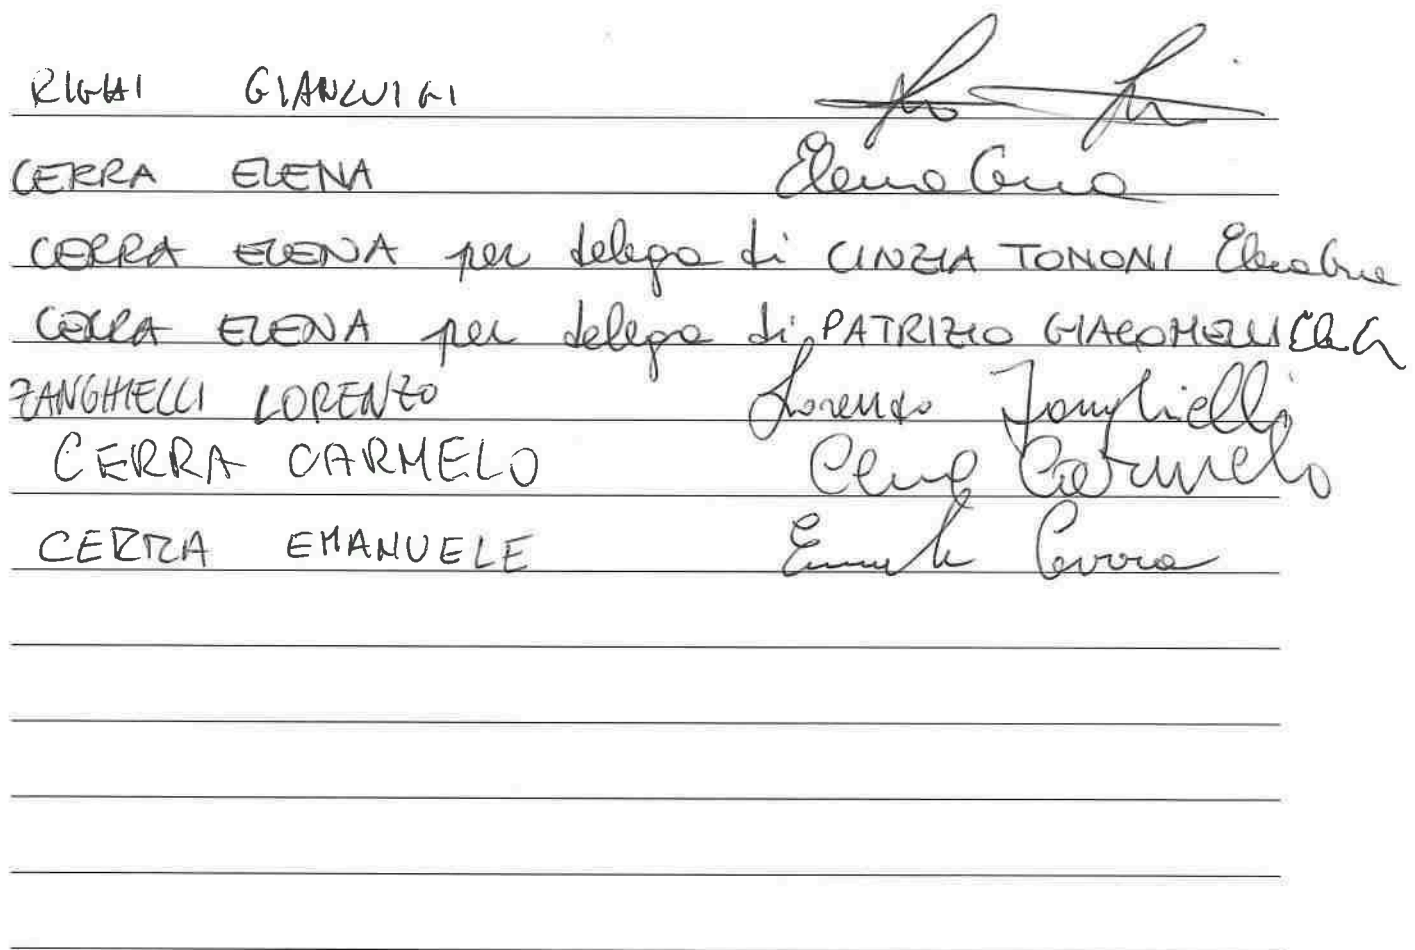 RIGHI GIANLUIGI
CERRA ELENA Elena Cerra
CERRA ELENA per delega di CINZIA TONONI Elena Cerra
CERRA ELENA per delega di PATRIZIO GIACOMELLI
ZANGHIELLI LORENZO Lorenzo Zanghielli
CERRA CARMELO Cerra Carmelo
CERRA EMANUELE Emanuele Cerra